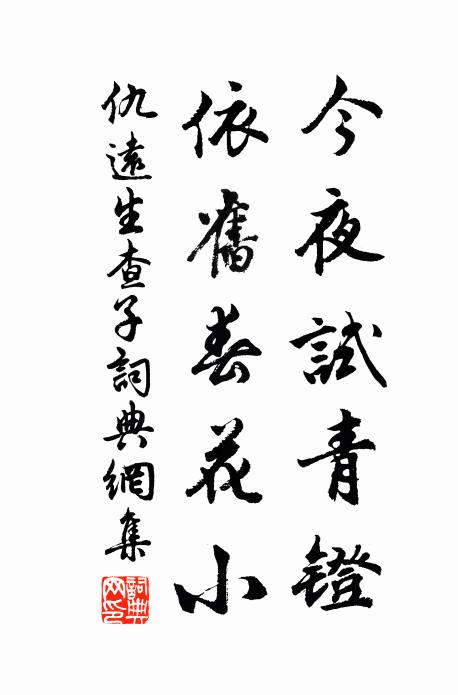 今夜試青鐙
依舊春花小
仇遠生查子詞典網集
詞典網印